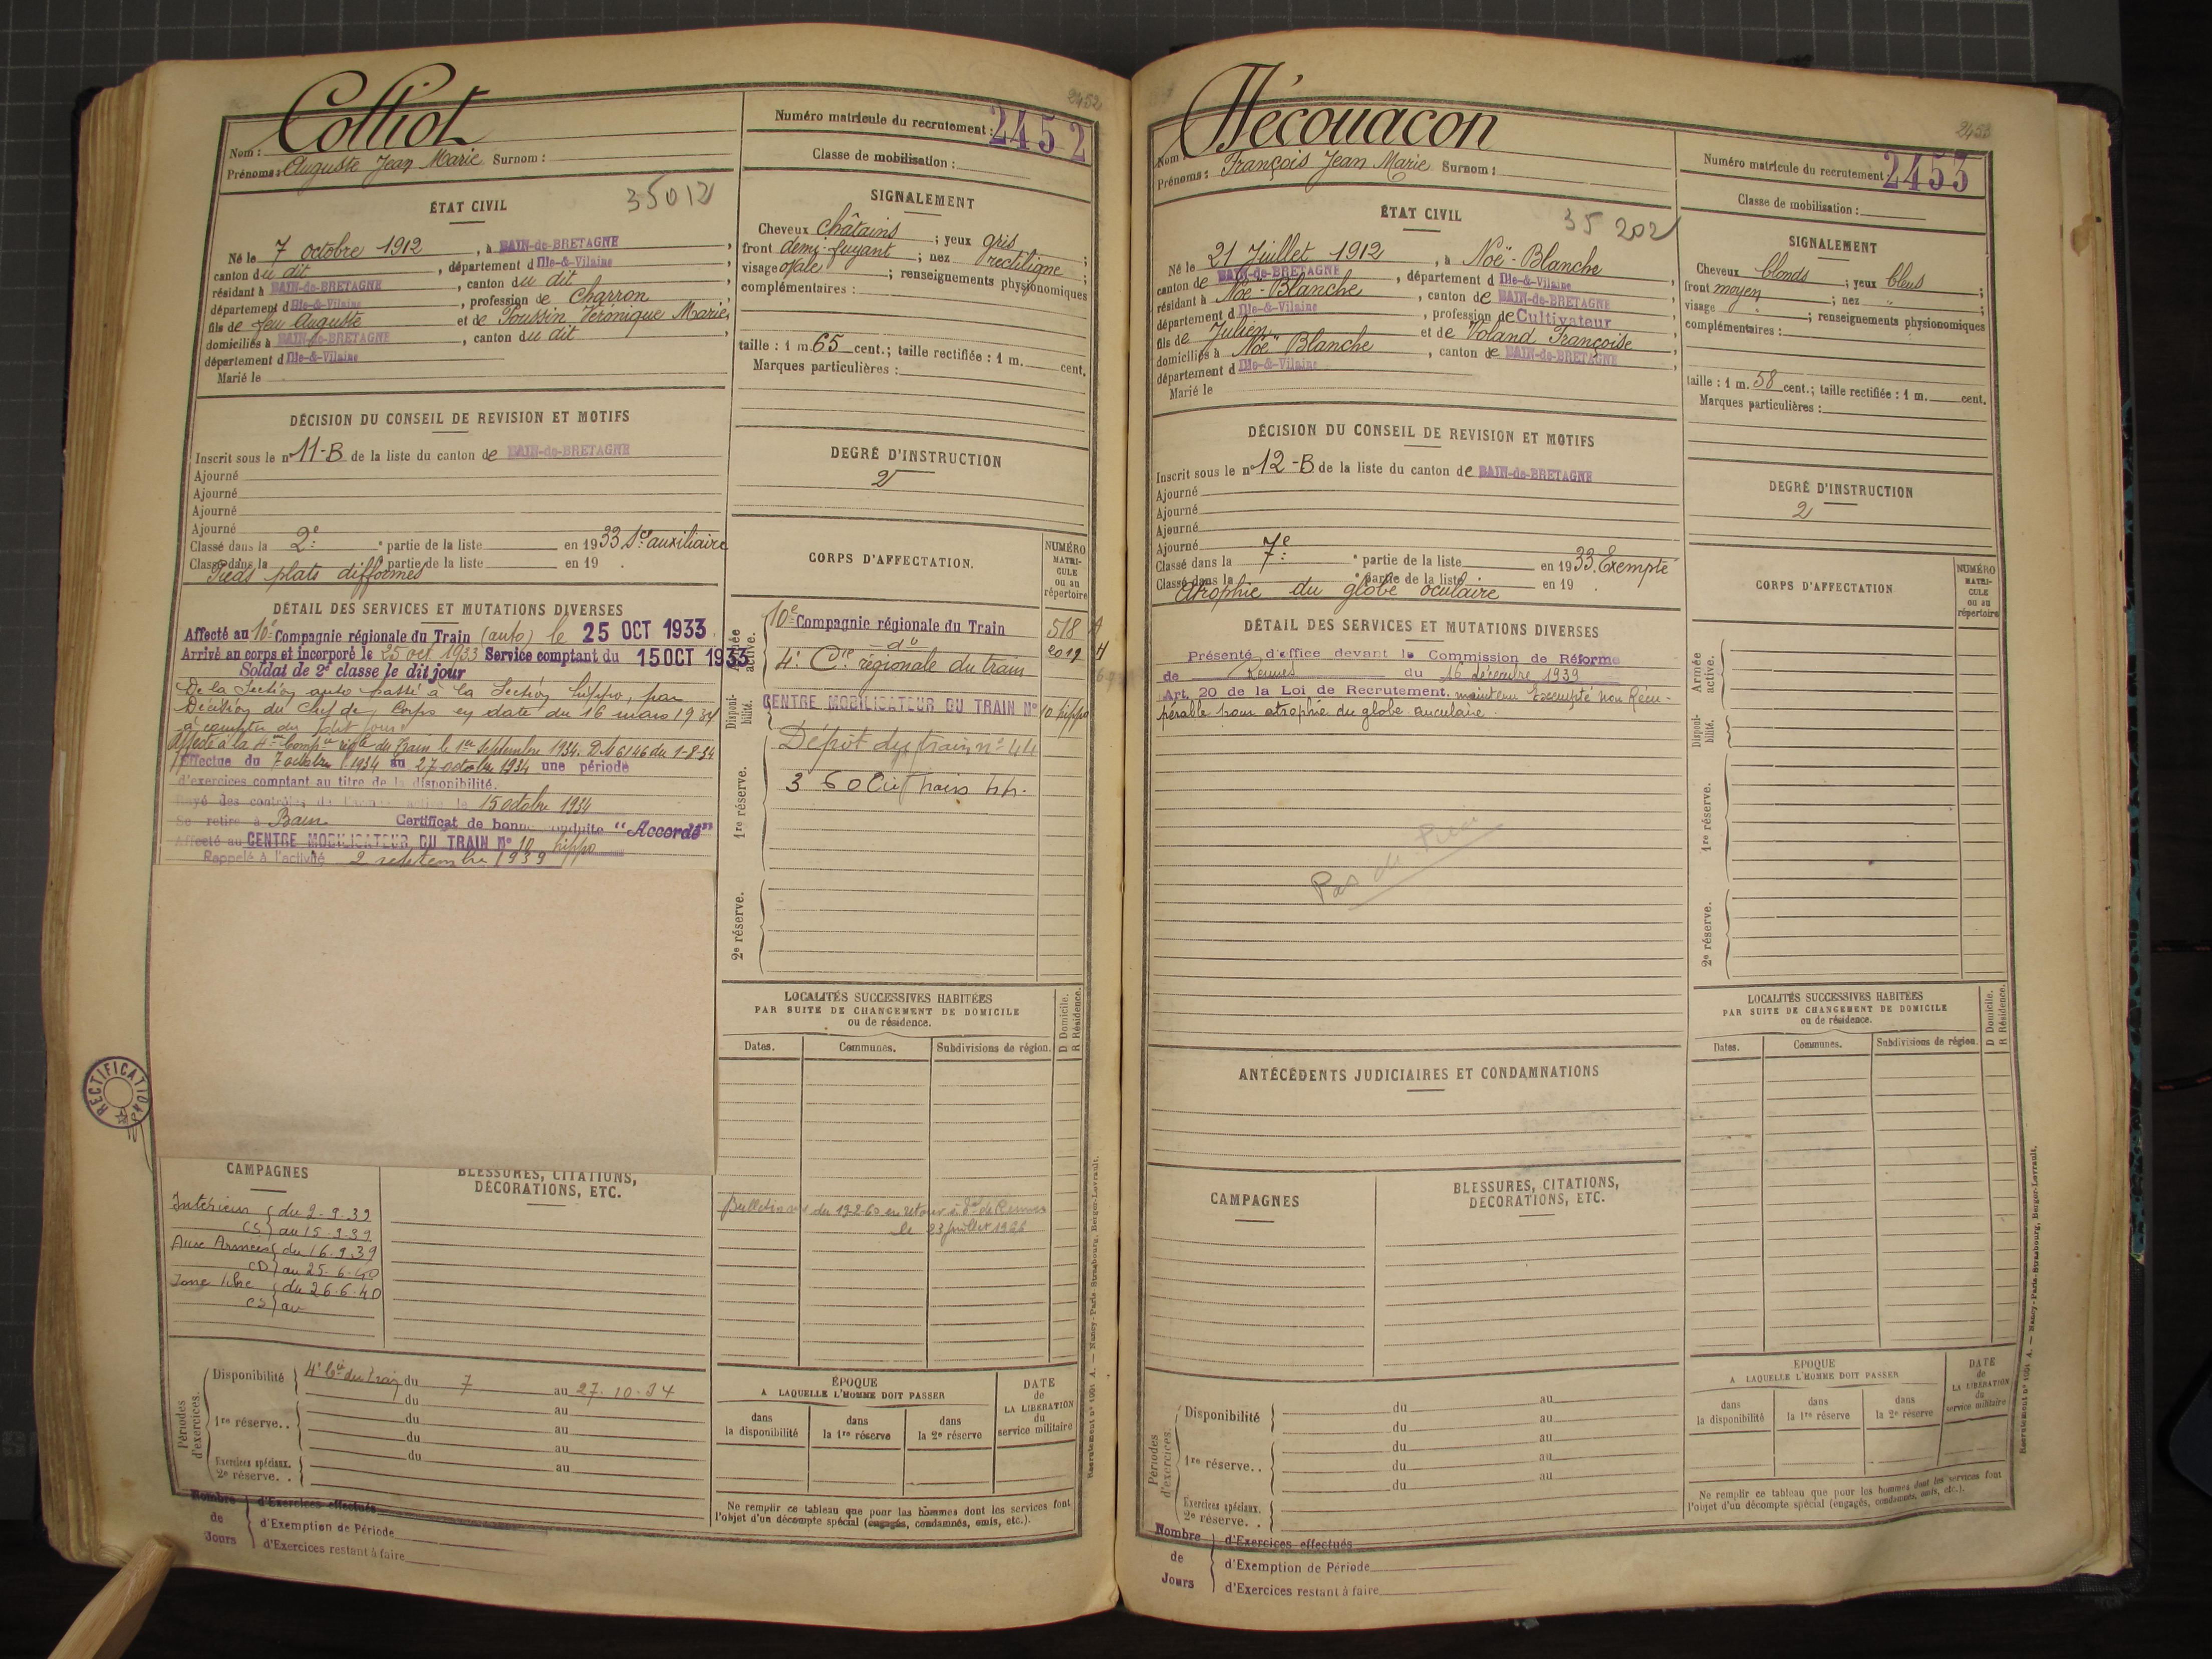 2452
Colliot
Nom :
Prénoms : Auguste Jean Marie Surnom :
Numéro matricule du recrutement : 2452
Classe de mobilisation :
ÉTAT CIVIL
35012
Né le 7 octobre 1912, à BAIN-de-BRETAGNE,
canton du dit, département d Ille-&-Vilaine,
résidant à BAIN-de-BRETAGNE, canton du dit,
département d Ille-&-Vilaine, profession de Charron
fils de feu Auguste et de Poussin Véronique Marie,
domiciliés à BAIN-de-BRETAGNE, canton du dit,
département d Ille-&-Vilaine
Marié le
SIGNALEMENT
Cheveux châtains ; yeux gris ;
front demi-fuyant ; nez rectiligne ;
visage ovale ; renseignements physionomiques
complémentaires :
taille : 1 m. 65 cent.; taille rectifiée : 1 m. cent.
Marques particulières :
DÉCISION DU CONSEIL DE REVISION ET MOTIFS
Inscrit sous le n° 11-B de la liste du canton de BAIN-de-BRETAGNE
Ajourné
Ajourné
Ajourné
Ajourné
Classé dans la 2e partie de la liste en 1933 Sce auxiliaire
Classé dans la partie de la liste en 19 .
Pieds plats difformes
DEGRÉ D'INSTRUCTION
2
DÉTAIL DES SERVICES ET MUTATIONS DIVERSES
Affecté au 10e Compagnie régionale du Train (auto) le 25 OCT 1933
Arrivé au corps et incorporé le 25 oct 1933 Service comptant du 15 OCT 1933
Soldat de 2e classe le dit jour
De la Section auto passé à la Section hippo, par
Décision du Chef de Corps en date du 16 mars 1934
à compter du dit jour
Affecté à la 4me Compie régle du Train le 1er septembre 1934. DM 6146 du 1-8-34
Effectue du 7 octobre 1934 au 27 octobre 1934 une période
d'exercices comptant au titre de la disponibilité.
Rayé des contrôles de l'armée active le 15 octobre 1934
Se retire à Bain Certificat de bonne conduite "Accordé"
Affecté au CENTRE MOBILISATEUR DU TRAIN N° 10 hippo
Rappelé à l'activité 2 septembre 1939
CORPS D'AFFECTATION.
NUMÉRO MATRI-CULE ou au répertoire
Armée active.
10e Compagnie régionale du Train 518 A
do 2019 H
4e Cie régionale du train
Disponi-bilité.
CENTRE MOBILISATEUR DU TRAIN N° 10 hippo
1re réserve.
Dépôt du train n° 44
2e réserve.
RECTIFICATIONS
LOCALITÉS SUCCESSIVES HABITÉES
PAR SUITE DE CHANGEMENT DE DOMICILE
ou de résidence.
Dates. Communes. Subdivisions de région. D Domicile. R Résidence.
le 23 juillet 1966
CAMPAGNES
Intérieur { du 2-9-39
CS } au 15-9-39
Aux Armées { du 16.9.39
CD } au 25-6-40
Zone libre { du 26-6-40
CS } au
BLESSURES, CITATIONS,
DÉCORATIONS, ETC.
Périodes d'exercices.
Disponibilité 4e Cie du train du 7 au 27-10-34
du au
1re réserve.. du au
du au
Exercices spéciaux. du au
2e réserve. .
ÉPOQUE
A LAQUELLE L'HOMME DOIT PASSER
dans la disponibilité
dans la 1re réserve
dans la 2e réserve
DATE de LA LIBÉRATION du service militaire
Ne remplir ce tableau que pour les hommes dont les services font
l'objet d'un décompte spécial (engagés, condamnés, omis, etc.).
Nombre de Jours
d'Exercices effectués
d'Exemption de Période
d'Exercices restant à faire
Recrutement n° 1001 A. — Nancy-Paris-Strasbourg, Berger-Levrault.
2453
Hécouacon
Nom :
Prénoms : François Jean Marie Surnom :
Numéro matricule du recrutement : 2453
Classe de mobilisation :
ÉTAT CIVIL
35 202
Né le 21 Juillet 1912, à Noë-Blanche
canton de BAIN-de-BRETAGNE, département d Ille-&-Vilaine,
résidant à Noë-Blanche, canton de BAIN-de-BRETAGNE,
département d Ille-&-Vilaine, profession de Cultivateur
fils de Julien et de Voland Françoise,
domiciliés à Noë Blanche, canton de BAIN-de-BRETAGNE,
département d Ille-&-Vilaine
Marié le
SIGNALEMENT
Cheveux blonds ; yeux bleus ;
front moyen ; nez " ;
visage ; renseignements physionomiques
complémentaires :
taille : 1 m. 58 cent.; taille rectifiée : 1 m. cent.
Marques particulières :
DÉCISION DU CONSEIL DE REVISION ET MOTIFS
Inscrit sous le n° 12-B de la liste du canton de BAIN-de-BRETAGNE
Ajourné
Ajourné
Ajourné
Ajourné
Classé dans la 7e partie de la liste en 1933 Exempté
Classé dans la partie de la liste en 19 .
Atrophie du globe oculaire
DEGRÉ D'INSTRUCTION
2
DÉTAIL DES SERVICES ET MUTATIONS DIVERSES
Présenté d'office devant la Commission de Réforme
de Rennes du 16 décembre 1939
Art. 20 de la Loi de Recrutement. maintenu Exempté non Récu-
pérable pour atrophie du globe auculaire.
CORPS D'AFFECTATION
NUMÉRO MATRI-CULE ou au répertoire
Armée active.
Disponi-bilité.
1re réserve.
2e réserve.
LOCALITÉS SUCCESSIVES HABITÉES
PAR SUITE DE CHANGEMENT DE DOMICILE
ou de résidence.
Dates. Communes. Subdivisions de région. D Domicile. R Résidence.
ANTÉCÉDENTS JUDICIAIRES ET CONDAMNATIONS
CAMPAGNES
BLESSURES, CITATIONS,
DÉCORATIONS, ETC.
Périodes d'exercices.
Disponibilité du au
du au
1re réserve.. du au
du au
du au
Exercices spéciaux.
2e réserve. .
ÉPOQUE
A LAQUELLE L'HOMME DOIT PASSER
dans la disponibilité
dans la 1re réserve
dans la 2e réserve
DATE de LA LIBÉRATION du service militaire
Ne remplir ce tableau que pour les hommes dont les services font
l'objet d'un décompte spécial (engagés, condamnés, omis, etc.).
Nombre de Jours
d'Exercices effectués
d'Exemption de Période
d'Exercices restant à faire
Recrutement n° 1001 A. — Nancy-Paris-Strasbourg, Berger-Levrault.